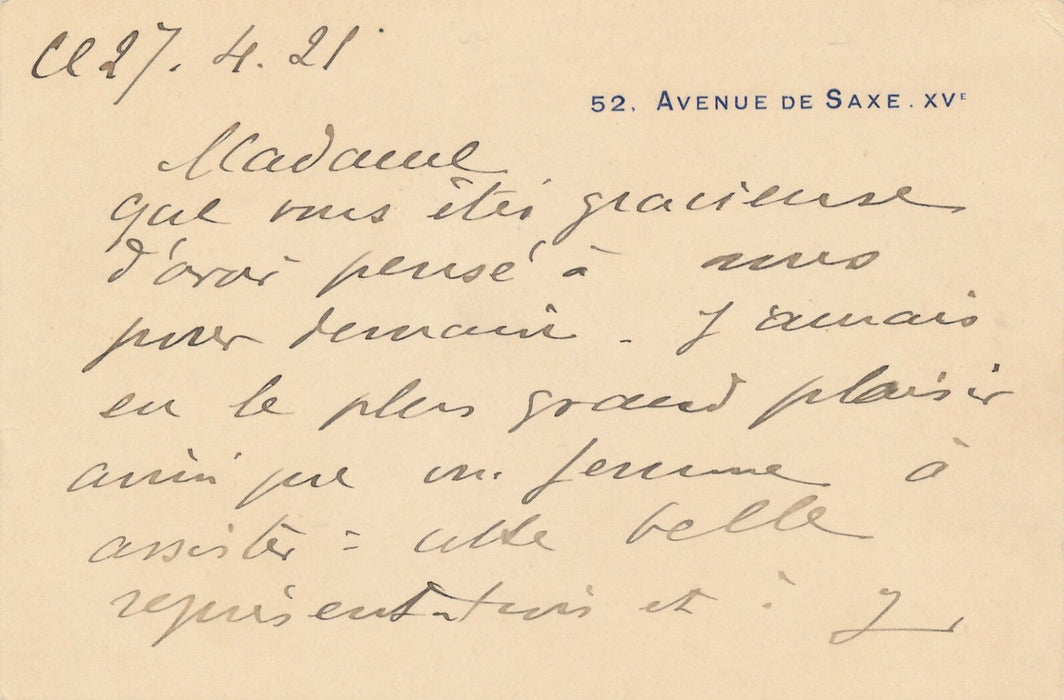 27.4.21
52. AVENUE DE SAXE. XVE
Madame
que vous êtes gracieuse
d'avoir pensé à nous
pour demain. J'aurais
eu le plus grand plaisir
ainsi que ma femme à
assister à cette belle
représentation et à y